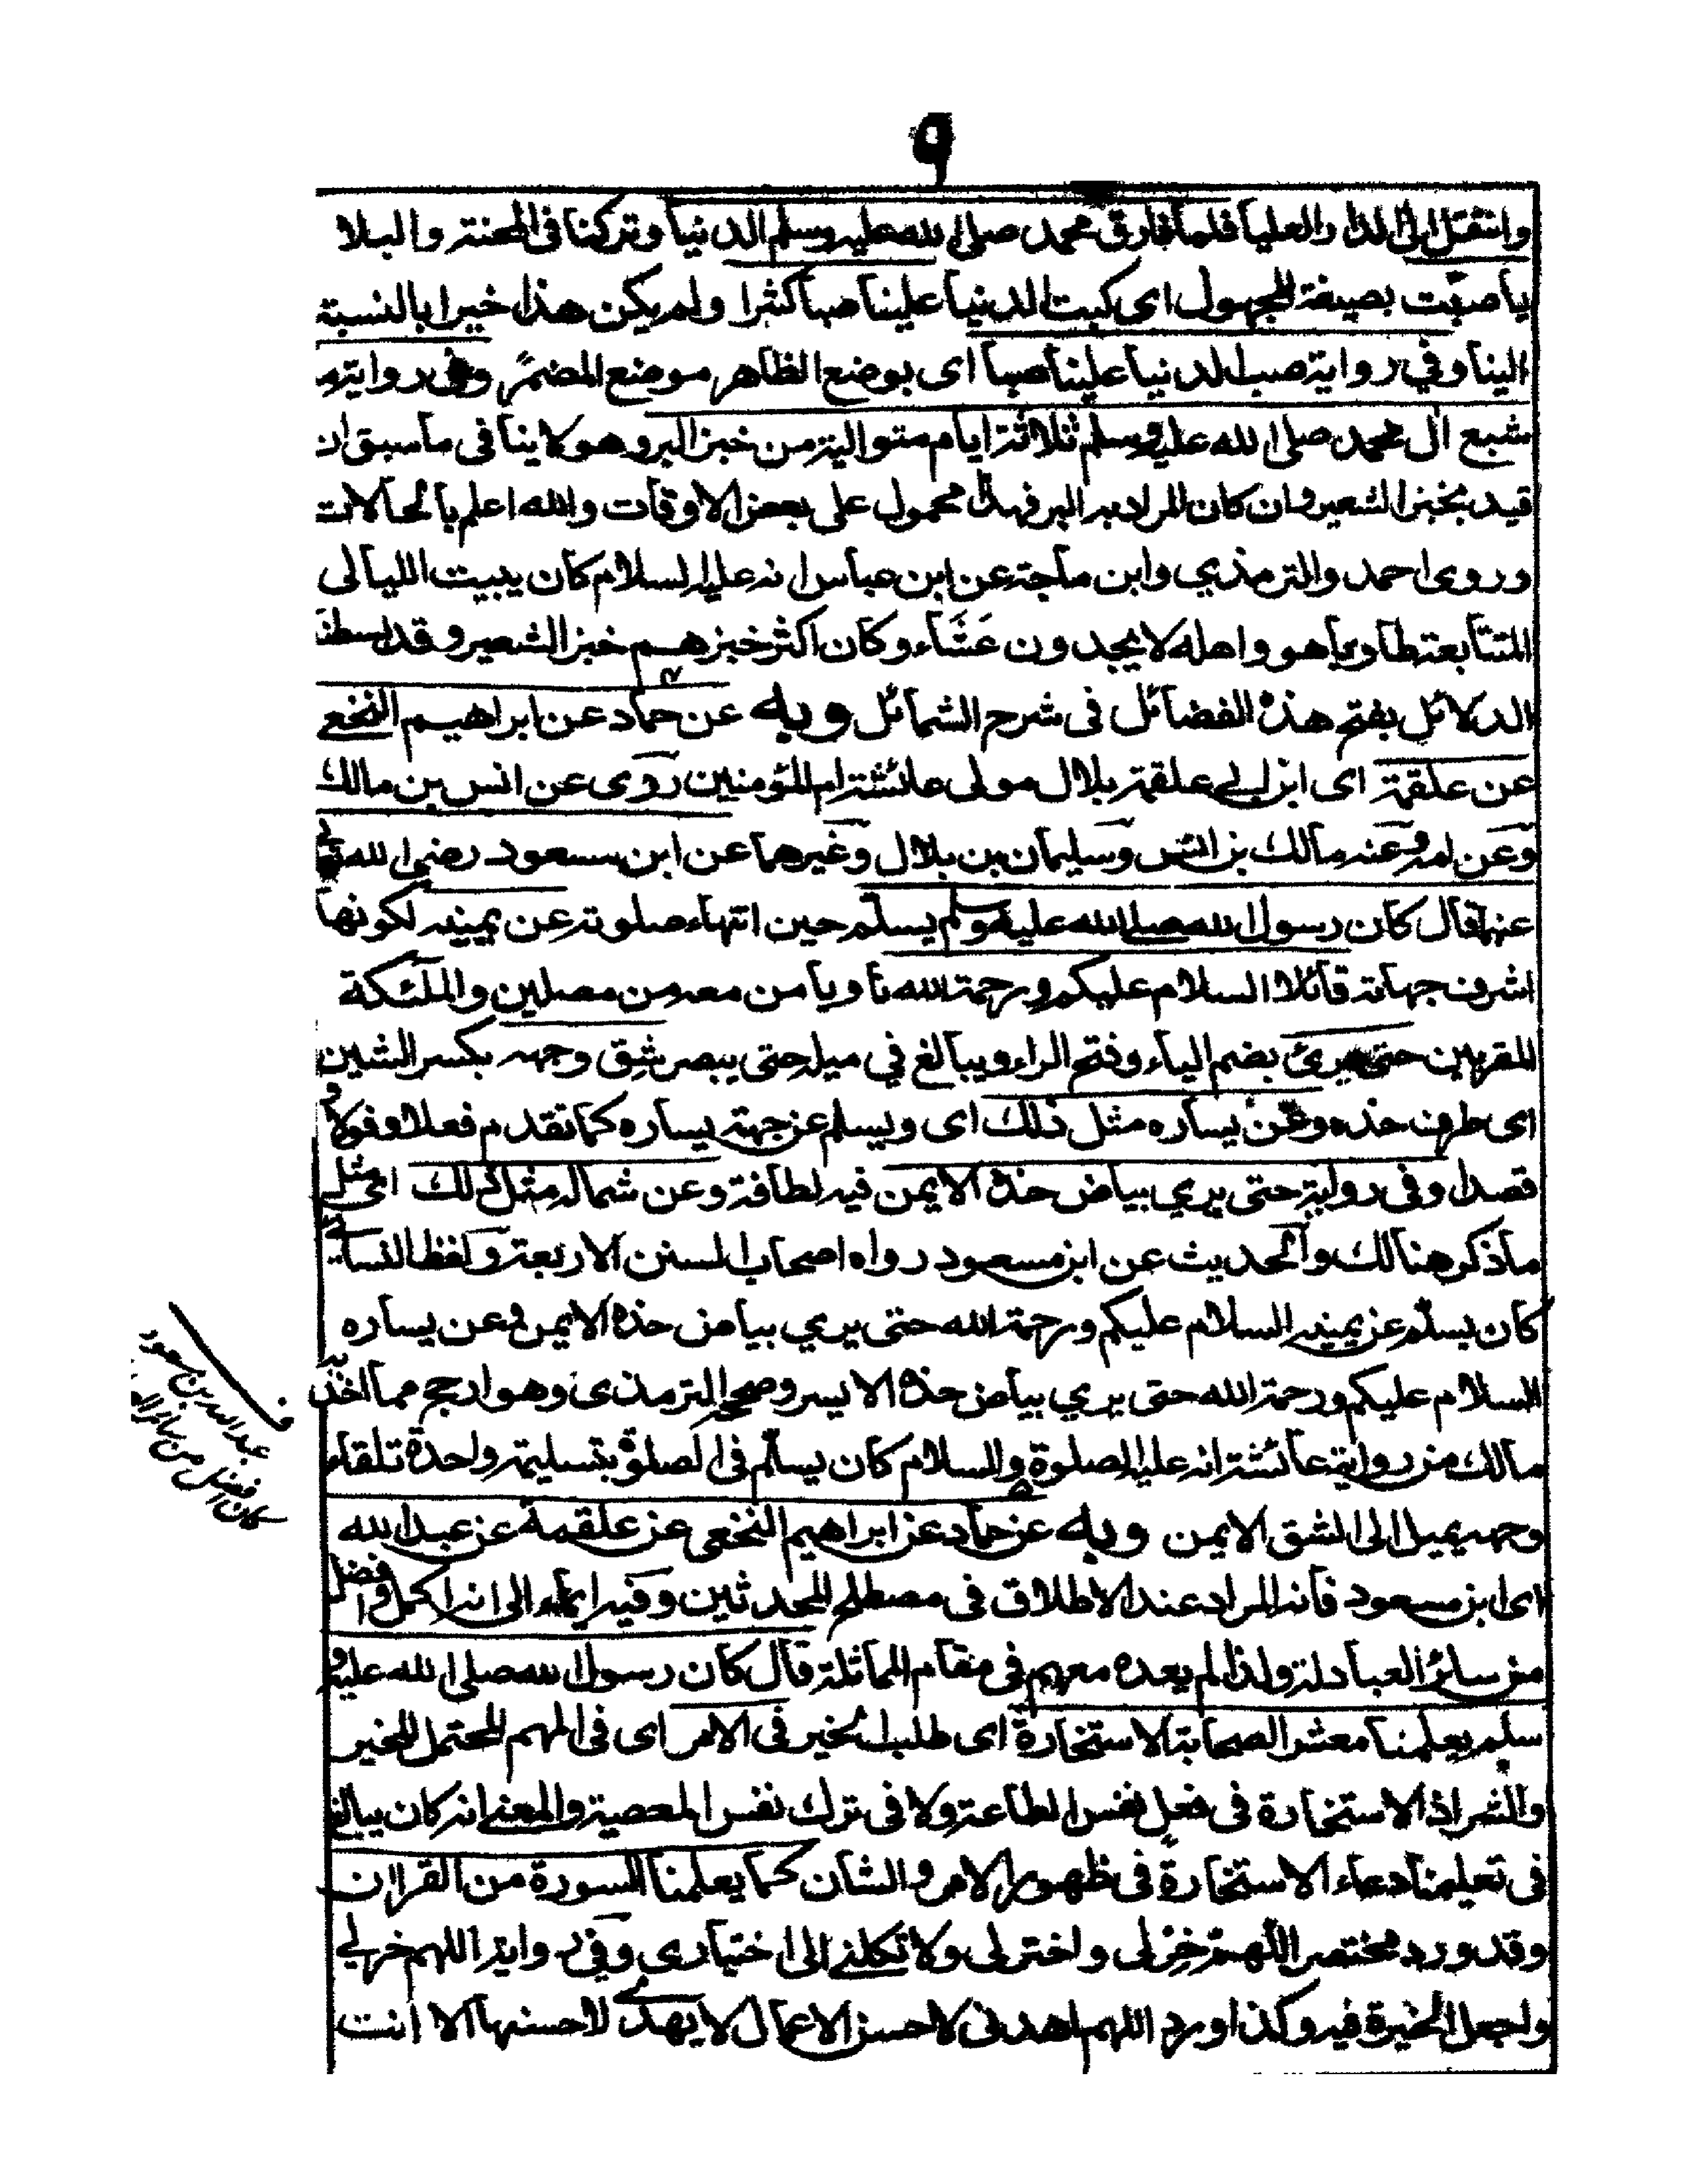 ٩
وانتقل الى الدار العليا فلما فارق محمد صلى الله عليه وسلم الدنيا وتركنا فى المحنة والبلا
يا صبت بصيغة المجهول اى كبت الدنيا علينا صبا كثرا ولم يكن هذا خيرا بالنسبة
الينا وفي رواية صب الدنيا علينا صبا اى بوضع الظاهر موضع المضمر وفى رواية ما
شبع ال محمد صلى الله عليه وسلم ثلاثة ايام متوالية من خبز البر وهو لا ينا فى ما سبق ان
قيد بخبز الشعير وان كان المراد به البر فهذا محمول على بعض الاوقات والله اعلم بالحالات
وروى احمد والترمذي وابن ماجة عن ابن عباس انه عليه السلام كان يبيت الليالى
المتتابعة طاويا هو واهله لا يجدون عَشَاء وكان اكثر خبزهم خبز الشعير وقد بسطنا
الدلائل بفتح هذه الفضائل فى شرح الشمائل وبه عن حماد عن ابراهيم النخعي
عن علقمة اى ابن ابي علقمة بلال مولى عائشة ام المؤمنين روى عن انس بن مالك
وعن امه وعنه مالك بن انس وسليمان بن بلال وغيرهما عن ابن مسعود رضي الله تعالى
عنهما قال كان رسول الله صلى الله عليه وسلم يسلم حين انتهاء صلوته عن يمينه لكونها
اشرف جهاته قائلا السلام عليكم ورحمة الله ناويا من معه من مصلين والملئكة
المقربين حتى يرى بضم الياء وفتح الراء ويبالغ في ميله حتى يبصر شق وجهه بكسر الشين
اى طرف خده وعن يساره مثل ذلك اى ويسلم عن جهة يساره كما تقدم فعلا وقولا و
قصدا وفى رواية حتى يري بياض خده الايمن فيه لطافة وعن شماله مثل ذلك اى مثل
ما ذكر هنالك والحديث عن ابن مسعود رواه اصحاب السنن الاربعة ولفظ النسائي
كان يسلم عن يمينه السلام عليكم ورحمة الله حتى يري بياض خده الايمن وعن يساره
السلام عليكم ورحمة الله حتى يري بياض خده الايسر وصححه الترمذى وهو ارجح مما اخذ به
مالك من رواية عائشة انه عليه الصلوة والسلام كان يسلم فى الصلوة بتسليمة واحدة تلقاء
وجهه يميل الى الشق الايمن وبه عن حماد عن ابراهيم النخعى عن علقمة عن عبد الله
اى ابن مسعود فانه المراد عند الاطلاق فى مصطلح المحدثين وفيه ايماء الى انه اكمل وافضل
من سائر العبادلة ولذا لم يعده معهم فى مقام المماثلة قال كان رسول الله صلى الله عليه و
سلم يعلمنا معشر الصحابة الاستخارة اى طلب الخير فى الامر اى فى المهم المحتمل للخير
والشر اذ الاستخارة فى فعل نفس الطاعة ولا فى ترك نفس المعصية والمعنى انه كان يبالغ
فى تعليمنا دعاء الاستخارة فى ظهور الامر والشان كما يعلمنا السورة من القران
وقد ورد مختصر اللهم خر لى واختر لى ولا تكلني الى اختيارى وفي رواية اللهم خر لي
واجعل الخيرة فيه وكذا ورد اللهم اهدنى لاحسن الاعمال لا يهدي لاحسنها الا انت
ف
عبد الله بن مسعود
كان افضل من سائر